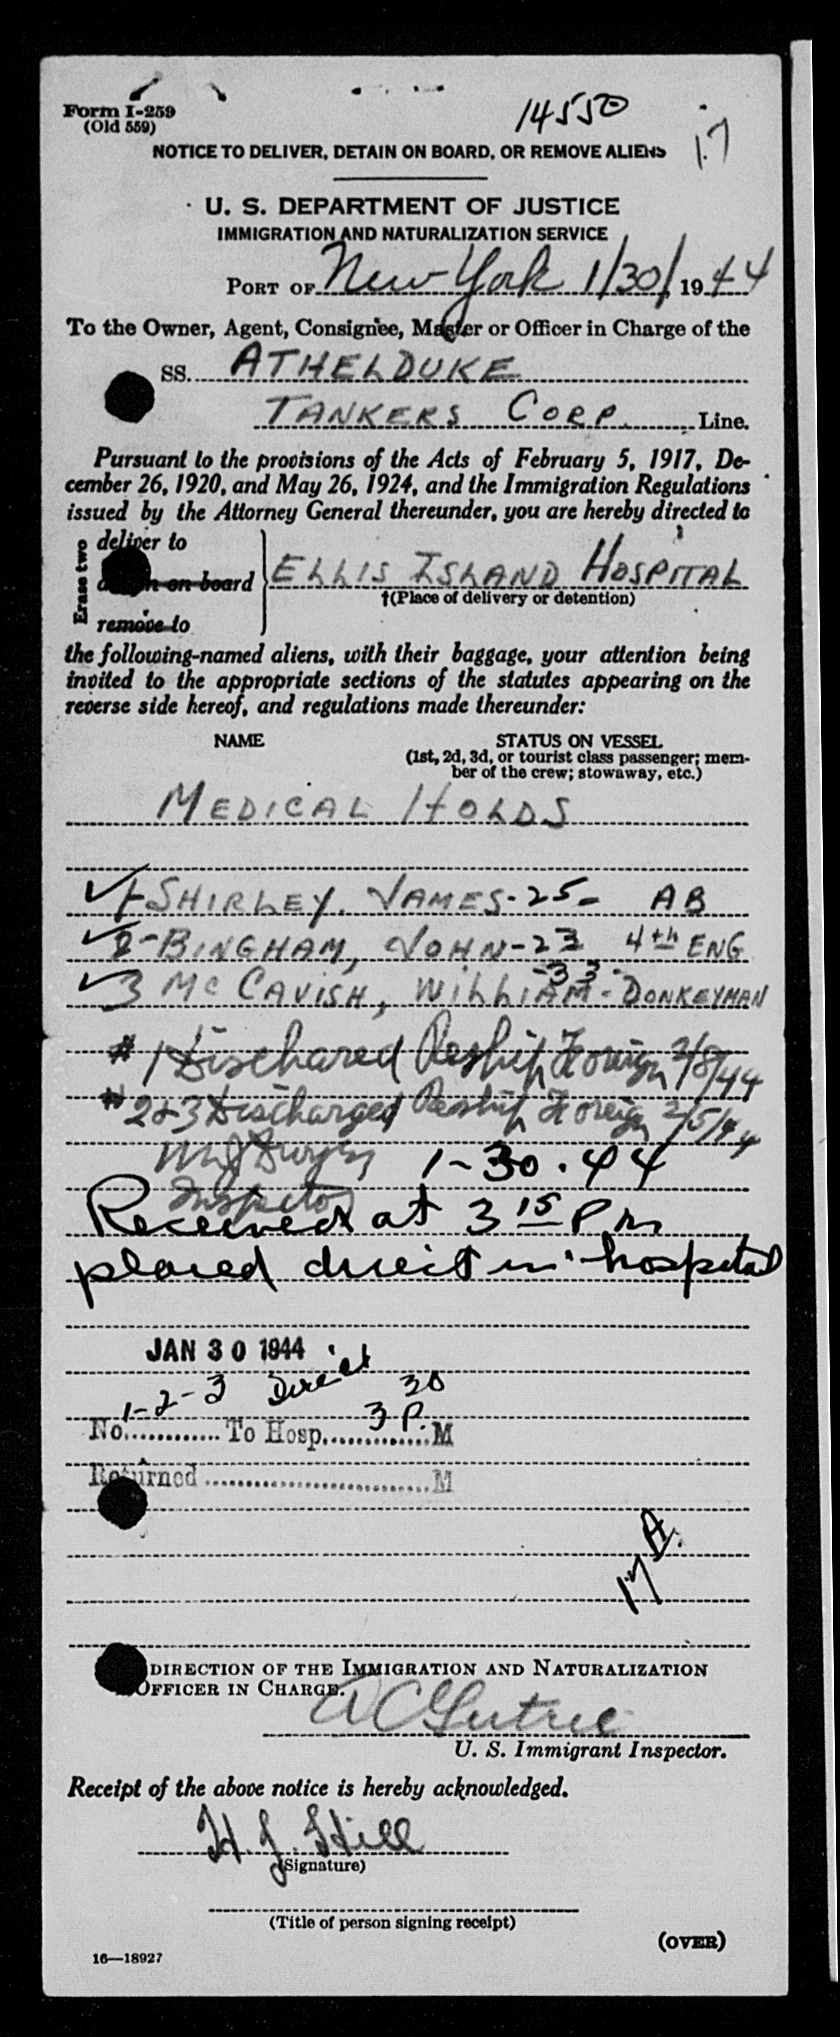 Form I-259
(Old 559)
14550
17
NOTICE TO DELIVER, DETAIN ON BOARD, OR REMOVE ALIENS
U. S. DEPARTMENT OF JUSTICE
IMMIGRATION AND NATURALIZATION SERVICE
PORT OF New York 1/30/ 1944
To the Owner, Agent, Consignee, Master or Officer in Charge of the
SS. ATHELDUKE
TANKERS CORP. Line.
Pursuant to the provisions of the Acts of February 5, 1917, De-
cember 26, 1920, and May 26, 1924, and the Immigration Regulations
issued by the Attorney General thereunder, you are hereby directed to
Erase two
deliver to
on board
remove to
ELLIS ISLAND HOSPITAL
†(Place of delivery or detention)
the following-named aliens, with their baggage, your attention being
invited to the appropriate sections of the statutes appearing on the
reverse side hereof, and regulations made thereunder:
NAME STATUS ON VESSEL
(1st, 2d, 3d, or tourist class passenger; mem-
ber of the crew; stowaway, etc.)
MEDICAL HOLDS
✓ 1- SHIRLEY, JAMES - 25 - AB
✓ 2- BINGHAM, JOHN - 23 4th ENG
✓ 3 MC CAVISH, WILLIAM -33- DONKEYMAN
# 1 Dischared Reship Foreign 2/8/44
# 2 & 3 Discharged Reship Foreign 2/5/44
1-30-44
Inspector
Received at 3 15 P m
placed direct in hospital
JAN 30 1944
1-2-3 Direct 3 30 P.
No. To Hosp. M
Returned M
17 A.
DIRECTION OF THE IMMIGRATION AND NATURALIZATION
OFFICER IN CHARGE.
A C Gutrie
U. S. Immigrant Inspector.
Receipt of the above notice is hereby acknowledged.
H. J. Hill
(Signature)
(Title of person signing receipt)
(OVER)
16—18927